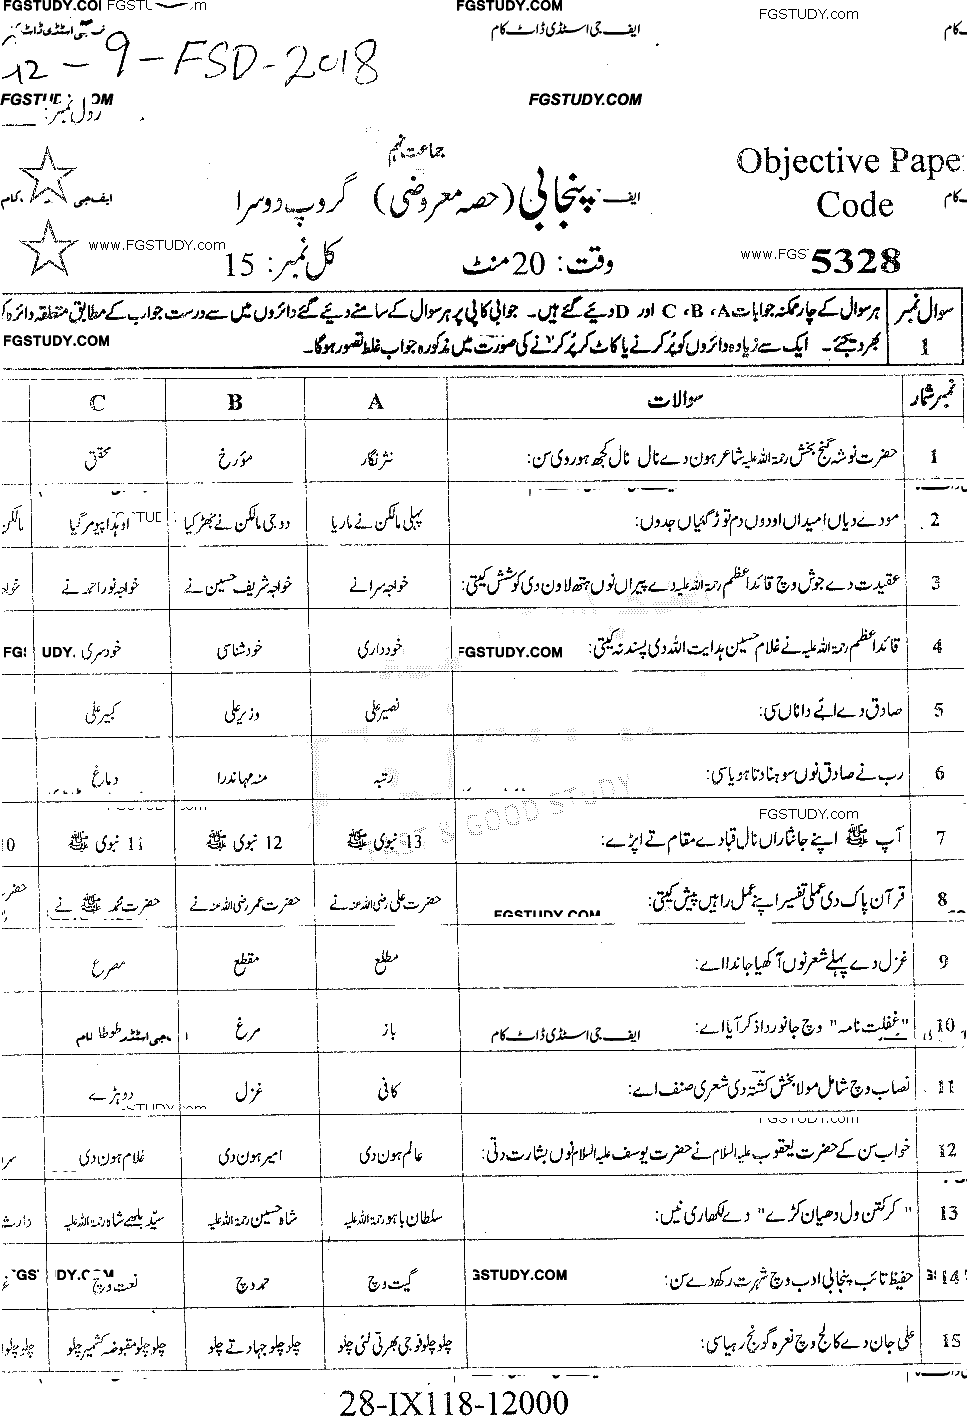 FGSTUDY.COM
FGSTUDY.COM
FGSTUDY.com
ایف جی اسٹڈی ڈاٹ کام
12-9-FSD-2018
FGSTUDY.COM
رول نمبر:
جماعت نہم
Objective Paper
Code
5328
پنجابی (حصہ معروضی) گروپ دوسرا
www.FGSTUDY.com
وقت: 20 منٹ
کل نمبر: 15
سوال نمبر 1
ہر سوال کے چار ممکنہ جوابات A، B، C اور D دیئے گئے ہیں۔ جوابی کاپی پر ہر سوال کے سامنے دیئے گئے دائروں میں سے درست جواب کے مطابق متعلقہ دائرہ کو
بھر دیجئے۔ ایک سے زیادہ دائروں کو پُر کرنے یا کاٹ کر پُر کرنے کی صورت میں مذکورہ جواب غلط تصور ہوگا۔
FGSTUDY.COM
نمبر شمار سوالات A B C
1 حضرت نوشہ گنج بخش رحمۃ اللہ علیہ شاعر ہون دے نال نال کجھ ہور وی سن: نثر نگار مؤرخ محقق
2 مودے دیاں امیداں اودوں دم توڑ گئیاں جدوں: پہلی مالکن نے ماریا دوجی مالکن نے جھڑکیا اوہدا پیو مر گیا مالکن
3 عقیدت دے جوش وچ قائداعظم رحمۃ اللہ علیہ دے پیراں نوں ہتھ لاون دی کوشش کیتی: خواجہ سرا نے خواجہ شریف حسین نے خواجہ نور احمد نے
4 قائداعظم رحمۃ اللہ علیہ نے غلام حسین ہدایت اللہ دی پسند نہ کیتی: FGSTUDY.COM خودداری خود شناسی خودسری
5 صادق دے ابے دا ناں سی: نصیر علی وزیر علی کبیر علی
6 رب نے صادق نوں سوہنا دتا ہویا سی: رتبہ منہ مہاندرا دماغ
FGSTUDY.com
7 آپ ﷺ اپنے جانثاراں نال قبا دے مقام تے اپڑے: 13 نبوی ﷺ 12 نبوی ﷺ 11 نبوی ﷺ 10
8 قرآن پاک دی عملی تفسیر اپنے عمل راہیں پیش کیتی: حضرت علی رضی اللہ عنہ نے حضرت عمر رضی اللہ عنہ نے حضرت محمد ﷺ نے حضرت
FGSTUDY.COM
9 غزل دے پہلے شعر نوں آکھیا جاندا اے: مطلع مقطع مصرع
10 "غفلت نامہ" وچ جانور دا ذکر آیا اے: ایف جی اسٹڈی ڈاٹ کام باز مرغ طوطا
11 نصاب وچ شامل مولا بخش کشتہ دی شعری صنف اے: کافی غزل دوہڑے
12 خواب سن کے حضرت یعقوب علیہ السلام نے حضرت یوسف علیہ السلام نوں بشارت دتی: عالم ہون دی امیر ہون دی غلام ہون دی
13 "کر کتن ول دھیان کڑے" دے لکھاری نیں: سلطان باہو رحمۃ اللہ علیہ شاہ حسین رحمۃ اللہ علیہ سیّد بلھے شاہ رحمۃ اللہ علیہ وارث
14 حفیظ تائب پنجابی ادب وچ شہرت رکھدے سن: گیت وچ حمد وچ نعت وچ
15 علی جان دے کالج وچ نعرہ گونج رہیا سی: چلو چلو فوجی بھرتی لئی چلو چلو چلو جہاد تے چلو چلو چلو مقبوضہ کشمیر چلو چلو چلو
28-IX118-12000